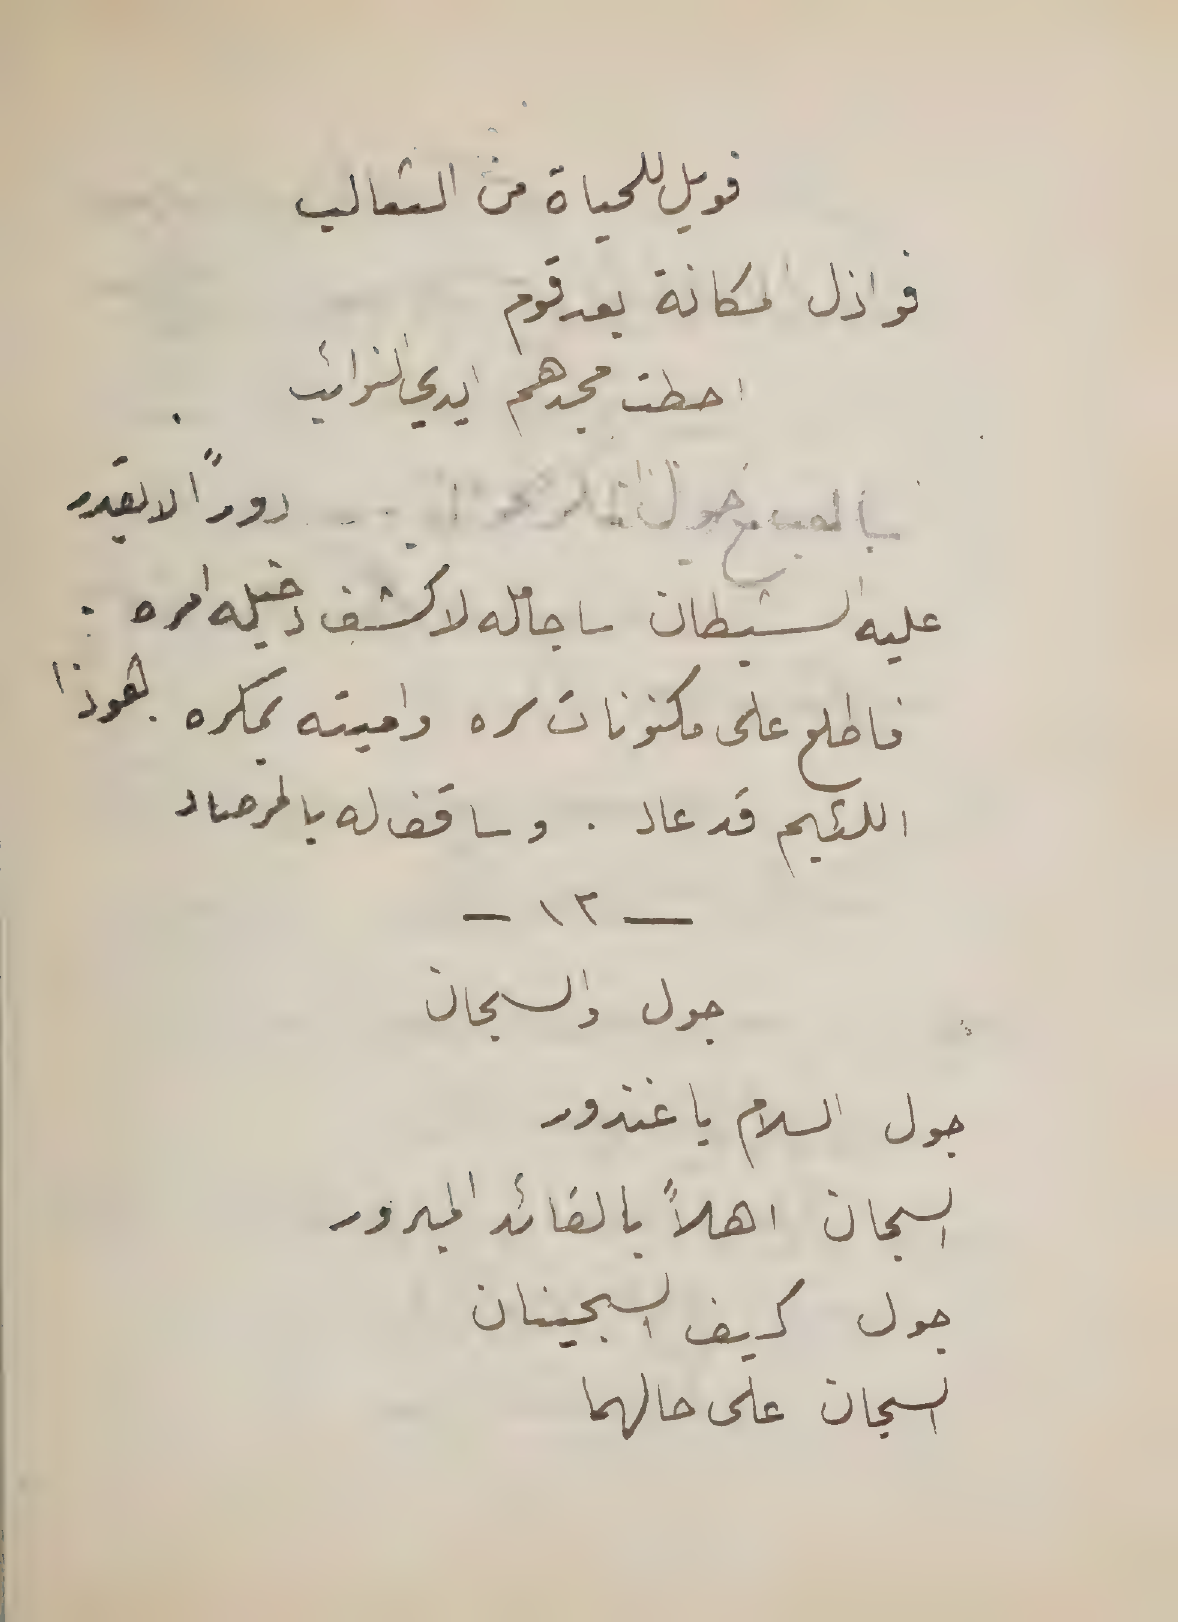 فويل للحياة من الثعالب
فواذل المكانة بعد قوم
احطت مجدهم ايدي النوائب
سالعب مع جول دورًا لا يقدر
عليه الشيطان ساجامله لاكشف دخيله امره .
فاطلع على مكنونات سره واميته بمكره هوذا
اللئيم قد عاد . وساقف له بالمرصاد
— ١٢ —
جول والسجان
جول السلام يا غندور
السجان اهلاً بالقائد المبرور
جول كيف السجينان
السجان على حالهما